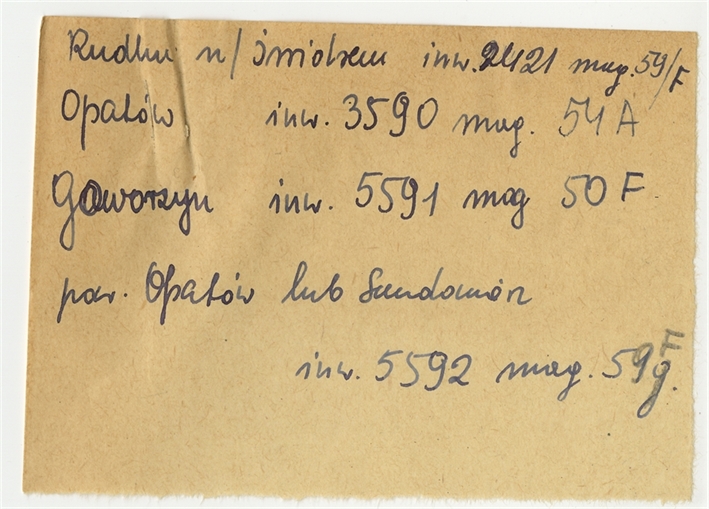 Rudka n/ Świdrem inw. 2421 mag. 59/F
Opatów inw. 3590 mag. 54 A
Gaworzyn inw. 5591 mag 50 F
pow. Opatów lub Sandomierz
inw. 5592 mag. 59 F